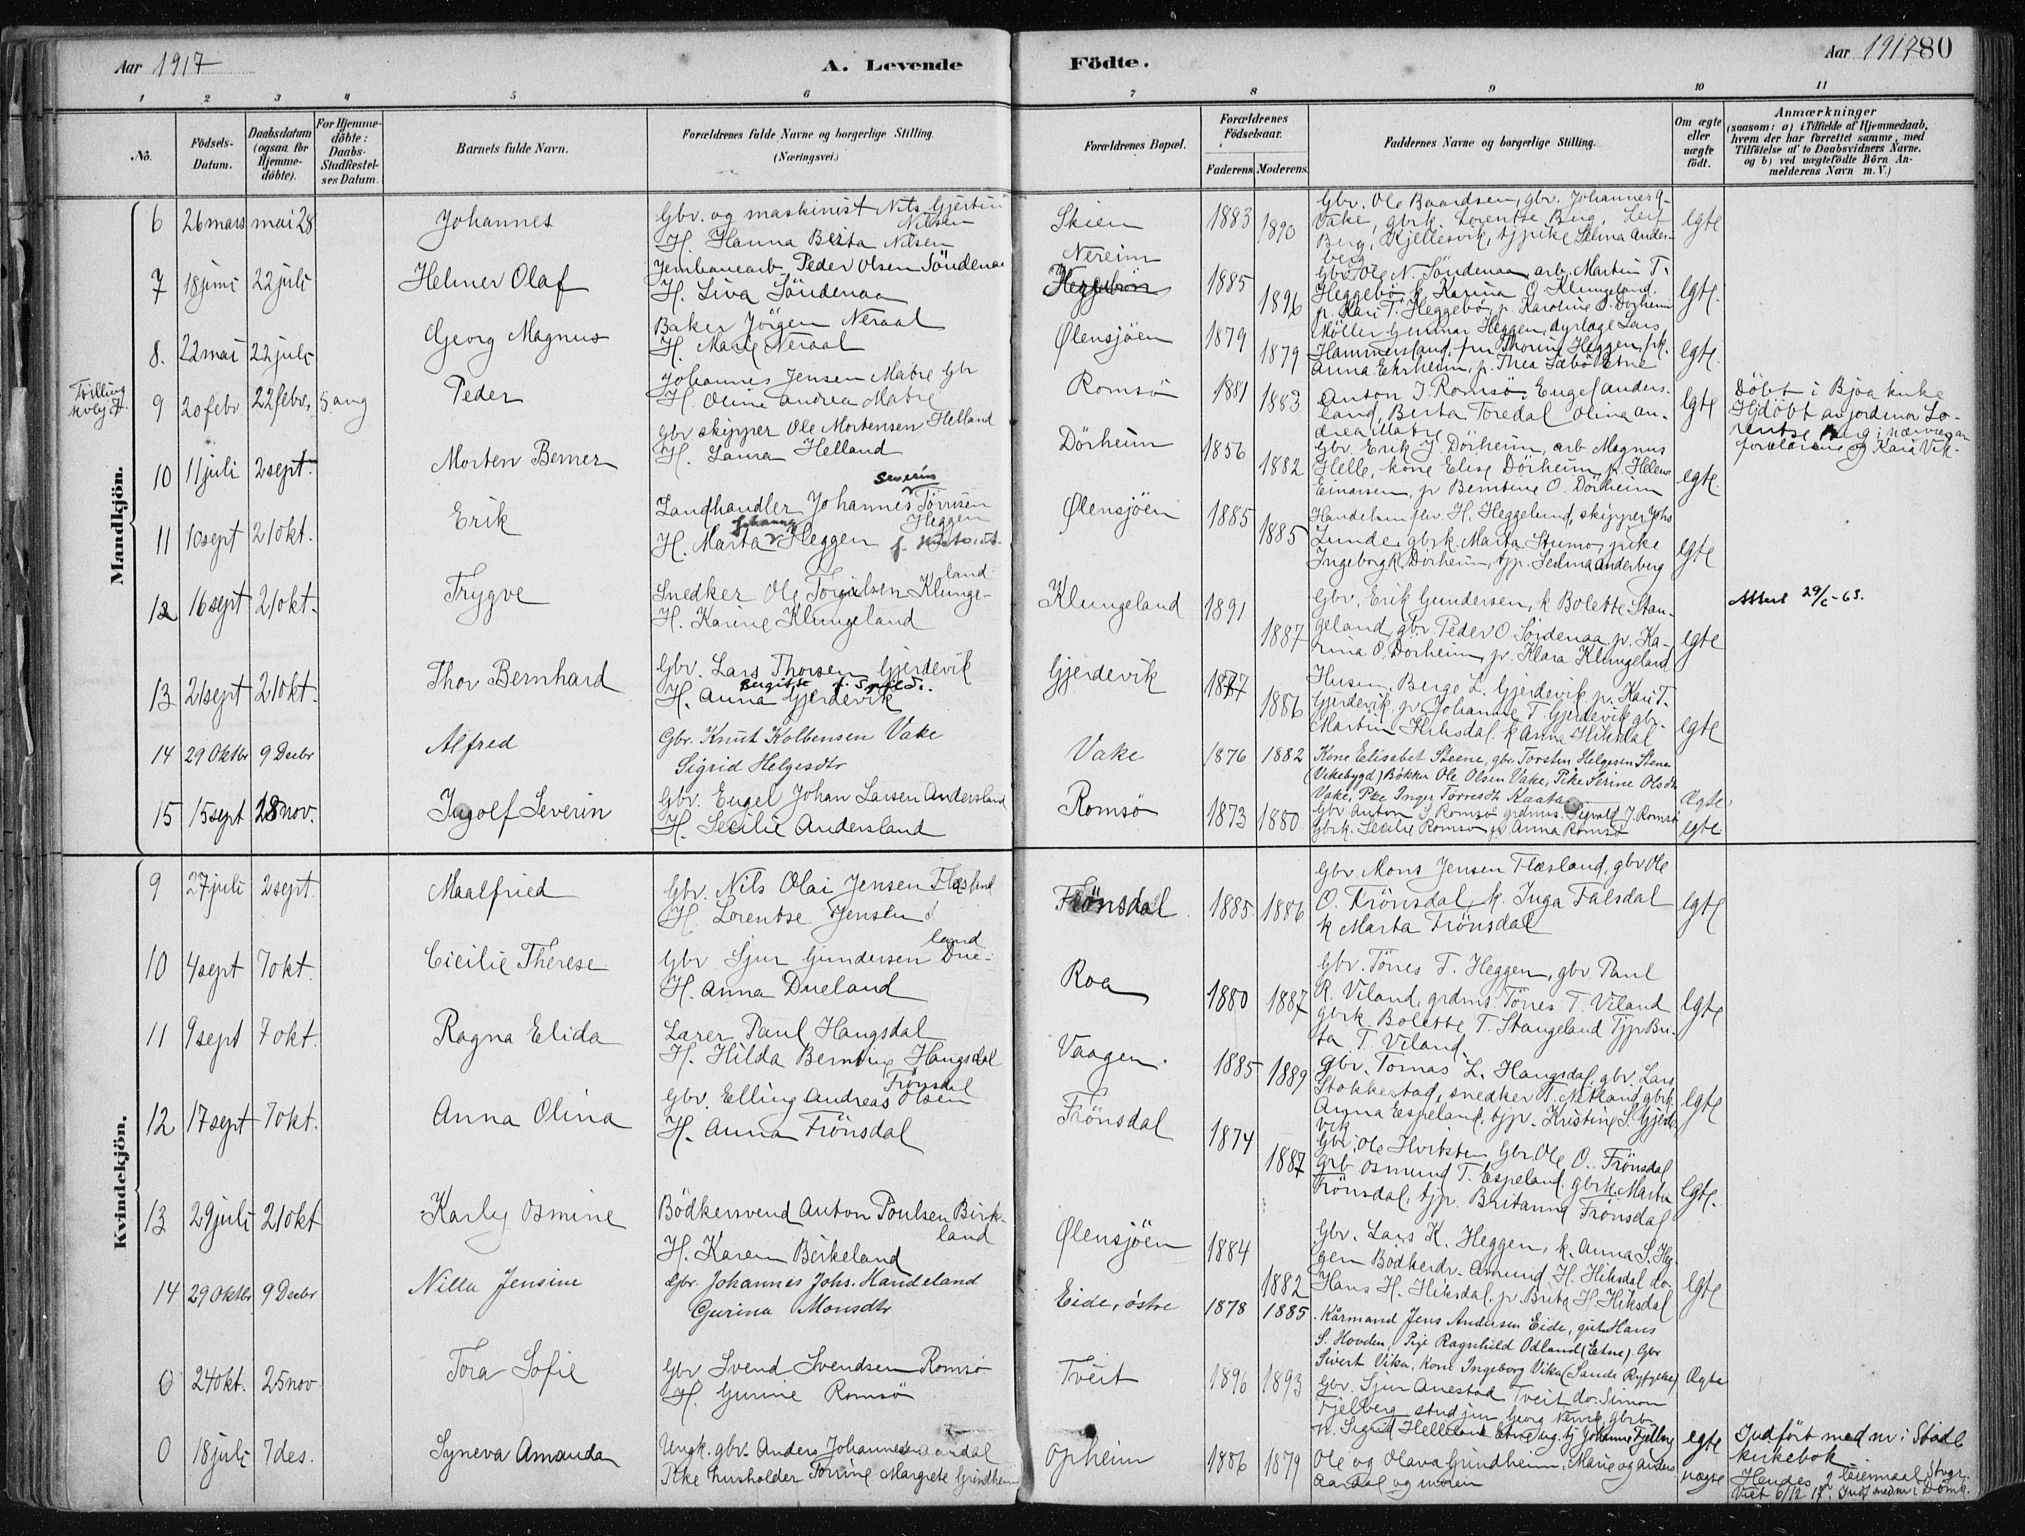 Aar 1917
A. Levende Födte.
Aar 1917
80
1 2 3 4 5 6 7 8 9 10 11
No.
Födsels-Datum.
Daabsdatum (ogsaa for Hjemme-döbte).
For Hjemme-döbte: Daabs-Stadfæstel-ses Datum.
Barnets fulde Navn.
Forældrenes fulde Navne og borgerlige Stilling. (Næringsvei.)
Forældrenes Bopæl.
Forældrenes Födselsaar.
Faderens Moderens
Faddernes Navne og borgerlige Stilling.
Om ægte eller uægte födt.
Anmærkninger
(saasom: a) i Tilfælde af Hjemmedaab, hvem der har forrettet samme, med Tilföielse af to Daabsvidners Navne, og b) ved uægtefödte Börn Anmelderens Navn m. V.)
Mandkjön.
6 26 mars mai 28 Johannes
Gbr. og maskinist Nils Gjertin Nilsen
H. Hanna Berta Nilsen
Skien 1883 1890
Gbr. Ole Baardsen, gbr. Johannes
Vake, gbrk. Lorentse Berg, Leif
Berg, Kjellesvik, tjpike Selma Anderberg
egte
7 18 juni 22 juli Helmer Olaf
Jernbanearb. Peder Olsen Söndenaa
H. Liva Söndenaa
Nereim
Heggebön
1885 1896
Gbr. Ole N. Söndenaa, arb. Martin T.
Heggebö k Karina O. Klungeland,
p. Kari T. Heggebö, p. Karoline O. Dörheim
egte.
8. 22 mai 22 juli Georg Magnus
Baker Jörgen Neraal
H. Marie Neraal
Ølensjöen 1879 1879
Möller Gunnar Heggen, dyrlæge Lars
Hammersland, fru Thorine Heggen, frk.
Anna Ekrheim, p. Thea Sæbö Etne
egte.
Tvilling
9 20 febr. 22 febr. 5 aug Peder
Johannes Jensen Matre Gbr
H. Oline Andrea Matre
Romsö 1881 1883
Anton J. Romsö, Engel Anders-
land, Berta Toredal Olina An-
drea Matre
egte
Döbt i Bjoa kirke
Hjdöbt av jordmor Lo-
rentse Berg i nærvær av
forældrene og Kari Vik.
10 11 juli 2 sept. Morten Berner
Gbr skipper Ole Mortensen Helland
H. Laura Helland
Dörheim 1856 1882
Gbr. Erik J. Dörheim, arb Magnus
Helle, kone Elise Dörheim, p. Helene
Einarsen, p Berntine O. Dörheim
egte
11 10 sept 21 okt. Erik
Severin
Landhandler Johannes Törrisen Heggen
Johanna
H. Marta Heggen
Ølensjöen 1885 1885
Handelsm. H. Heggelund, skipper Johs
Lunde, gbrk. Marta Stumo, pike
Ingeborg K. Dörheim, tjp. Selma Anderberg
egte
12 16 sept 21 okt. Trygve
Snedker Ole Torgilsen Klunge-land
H. Karine Klungeland
Klungeland 1891 1887
Gbr. Erik Gundersen, k Bolette Stan-
geland, gbr. Peder O. Söndenaa p. Ka-
rina O. Dorheim, p. Klara Klungeland
egte
Attest 29/6-65.
13 21 sept 21 okt. Thor Bernhard
Gbr. Lars Thorsen Gjerdevik
Bergitte
H. Anna Gjerdevik
Gjerdevik 1877 1886
Husm. Berge L. Gjerdevik p. Kari T.
Gjerdevik, p. Johanne T. Gjerdevik gbr.
Martin Hiksdal k Anna Hiksdal
egte
14 29 Oktbr 9 Decbr Alfred
Gbr. Knut Kolbensen Vake
Sigrid Helgesdtr
Vake 1876 1882
Kone Elisabet Steene, gbr Torsten Helgesen Stene
(Vikebygd) Bökker Ole Olsen Vake, Pike Serine Olsdtr
Vake, Pke Inger Törresdt. Kaata
Ægte
15 15 sept 18 nov. Ingolf Severin
Gbr. Engel Johan Larsen Andersland
H. Secilie Andersland
Romsö 1873 1880
Gbr Anton J. Romsö grdms. Sigvald J. Romsö
Gbrk. Secilie Romsö p. Anna Romsö
egte
Kvindekjön.
9 27 juli 2 sept. Maalfried
Gbr. Nils Olai Jensen Flæsland
H. Lorentse Jensen
Frönsdal 1885 1886
Gbr Mons Jensen Flæsland, gbr Ole
O. Frönsdal, k. Inga Falsdal
k Marta Frönsdal
egte
10 4 sept 7 okt. Cicilie Therese
Gbr. Sjur Gundersen Due-land
H. Anna Dueland
Roa 1880 1887
Gbr. Törres T. Heggen, gbr. Paul
R. Viland, grdms. Törres T. Viland
gbrk Bolette T. Stangeland Tjp Bri-
ta T. Viland
egte
11 9 sept 7 okt. Ragna Elida
Lærer Paul Haugsdal
H. Hilda Berntine Haugsdal
Vaagen. 1885 1889
Gbr. Tomas L. Haugsdal, gbr. Lars
Stokkestad, snedker T. Netland, gbrk.
Anna Espeland, tjp. Kristine S. Gjerde-
vik
egte
12 17 sept 7 okt. Anna Olina
Gbr. Elling Andreas Olsen Frönsdal
H. Anna Frönsdal
Frönsdal 1874 1887
Gbr. Ole Hvitsten Gbr. Ole O. Frönsdal
grb Osmund T. Espeland, gbrk. Marta
Frönsdal, tjp. Britanna Frönsdal
egte.
13 29 juli 21 okt Karly Osmine
Bödkersvend Anton Poulsen Birk-land
H. Karen Birkeland
Ølensjöen 1884 1882
Gbr. Lars K. Heggen, k. Anna S. Heg-
gen Bödkerdr. Amund H. Hiksdal do.
Hans H. Hiksdal. p. Brita H. Hiksdal
egte
14 29 Oktbr 9 Decbr Nilla Jensine
Gbr. Johannes Johs. Handeland
Gurina Monsdtr
Eide, östre 1878 1885
Kårmand Jens Andersen Eide, gut Hans
S. Hovden, Pije Ragnhild Odland (Etne). Gbr
Sivert Vika, Kone Ingeborg Vika (Sands Ryfylke)
Ægte
0 24 okt. 25 nov Tora Sofie
Gbr Svend Svendsen Romsö
H. Gurine Romsö
Tveit 1890 1893
Gbr. Sjur Anestad Tveit do. Simon
Fjelberg stud jur Georg
Sigrid Helleland Etne, ug. tj Johanne Fjelberg
egte
Indfört med nr i Stødl
kirkebok
0 18 juli 7 des. Syneva Amanda
Ungk. gbr. Anders Johannesen Aardal
Pike husholder Torine Margrete Grindheim
Opheim 1886 1879
Ole og Olava Grindheim, Marie og Anders
Aardal og moren
uægte
Hendes 2 leiermaal
6/12 17. Indf med nr i